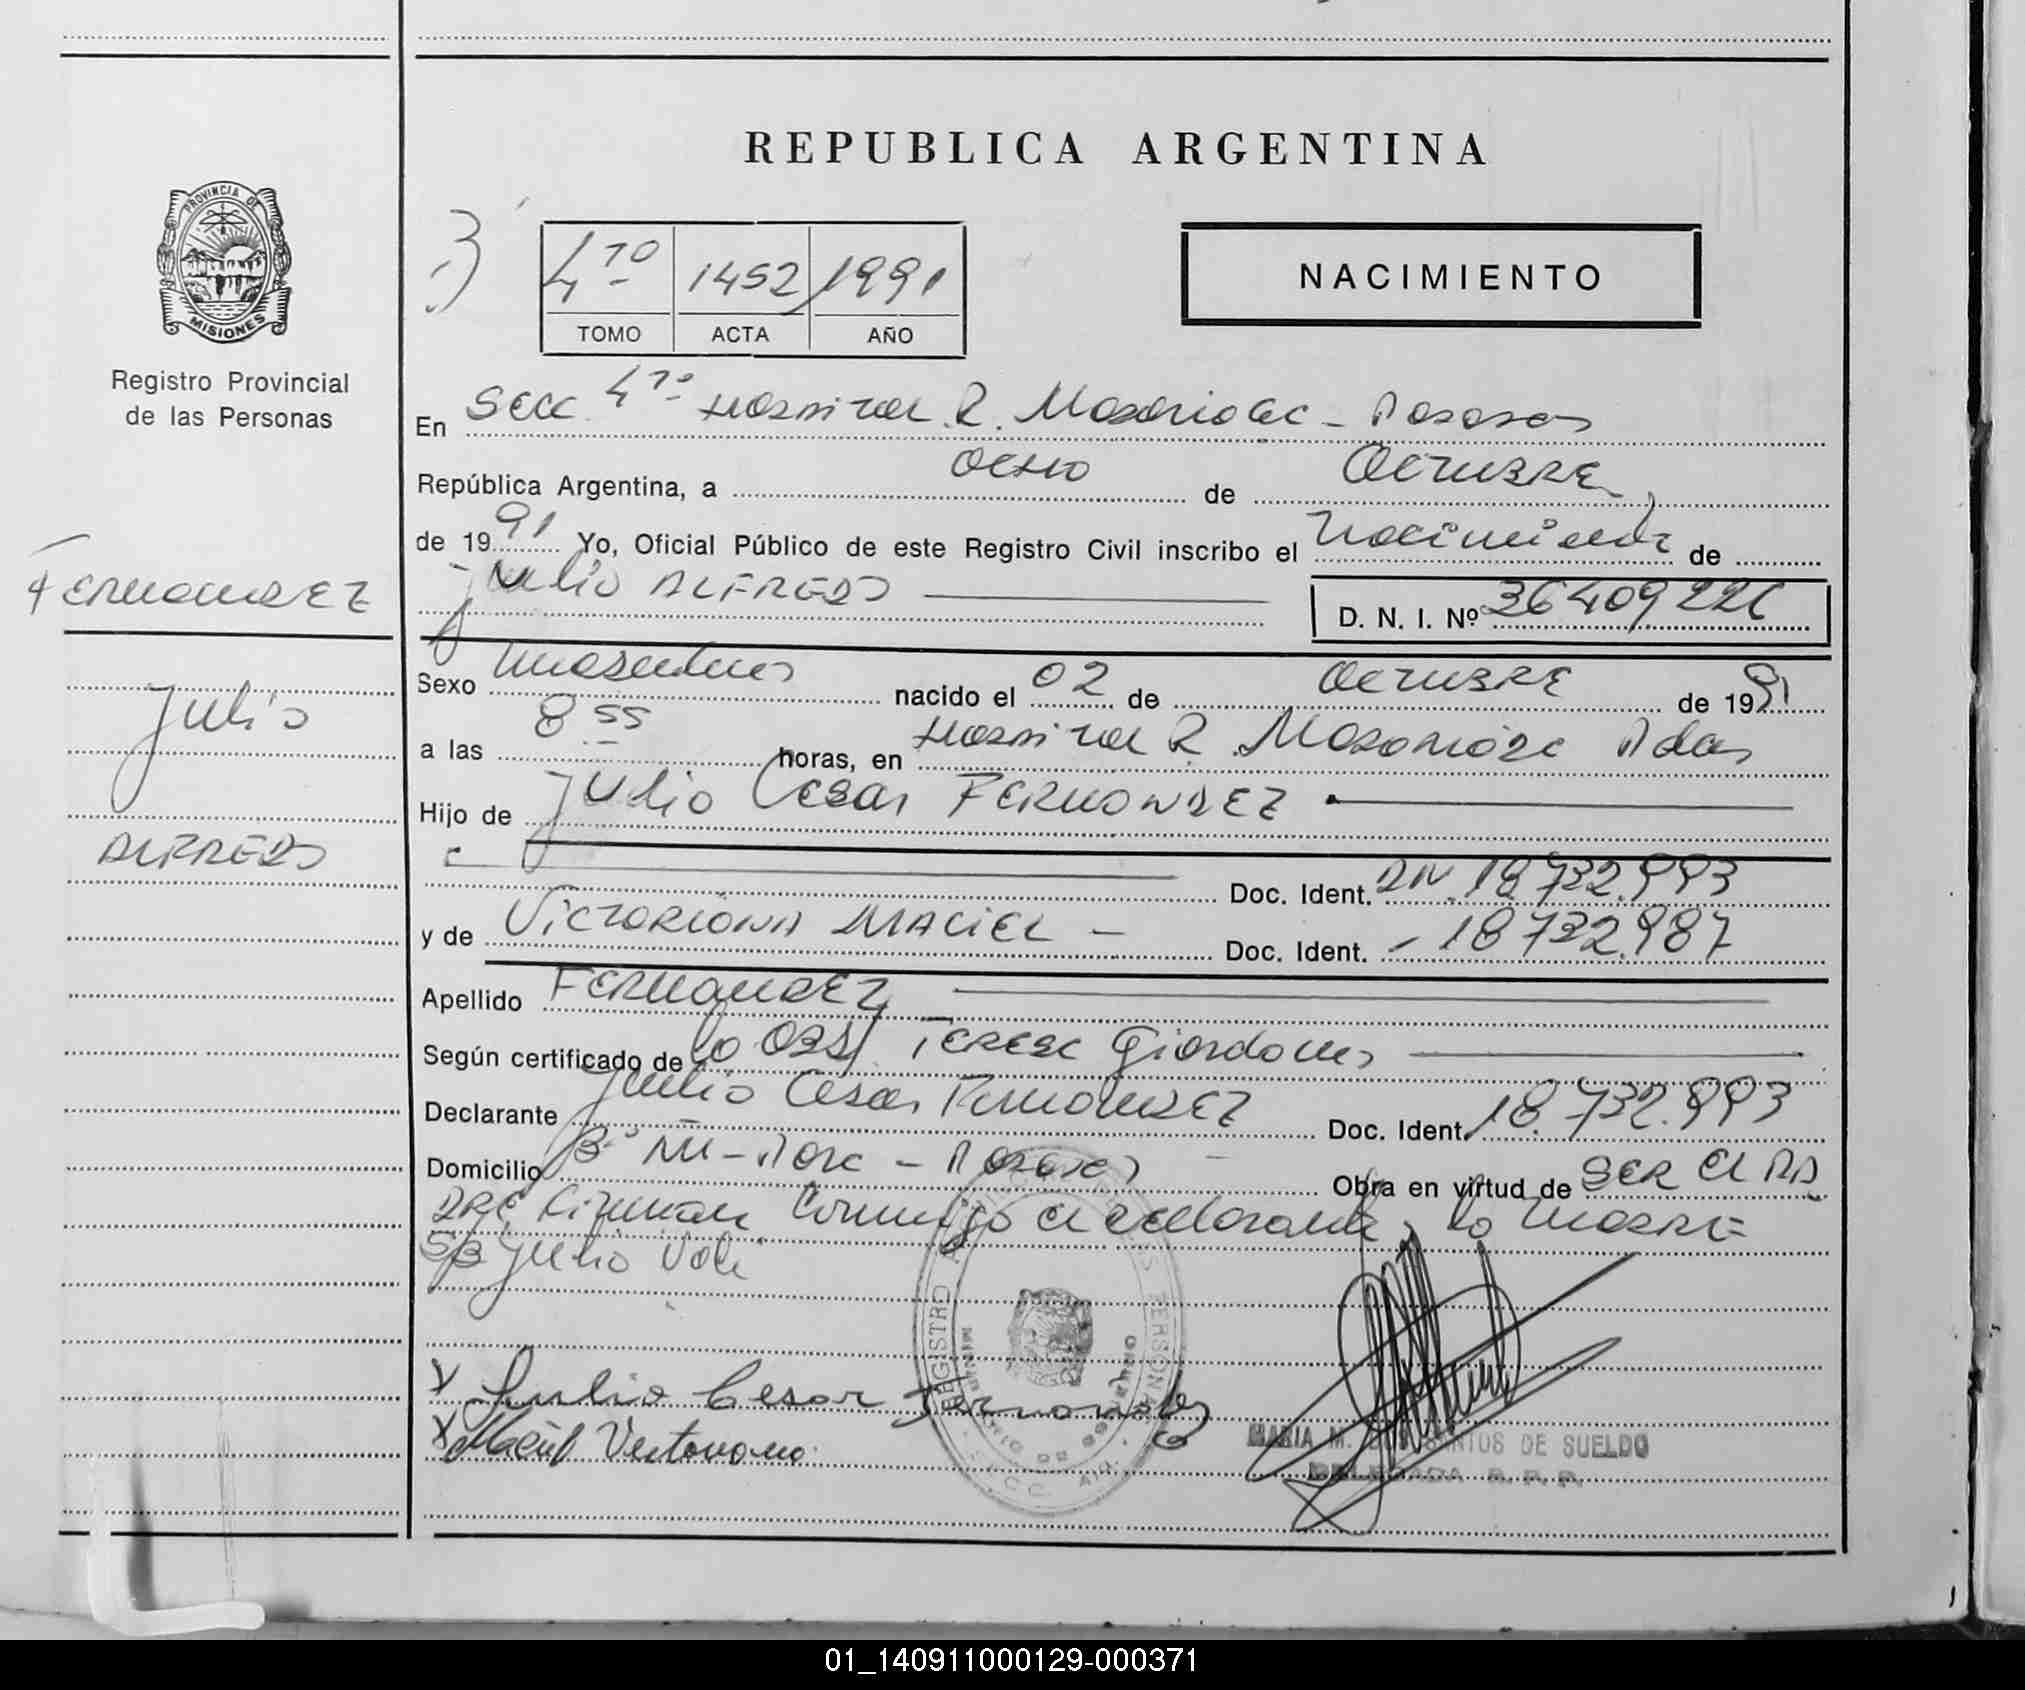 REPUBLICA ARGENTINA
PROVINCIA DE
MISIONES
Registro Provincial
de las Personas
3)
4to 1452 1991
TOMO ACTA AÑO
NACIMIENTO
En Secc. 4to Hospital R. Madariaga - Posadas
República Argentina, a ocho de Octubre
de 1991 Yo, Oficial Público de este Registro Civil inscribo el nacimiento de
FERNANDEZ
Julio ALFREDO D. N. I. Nº 36409226
Sexo masculino nacido el 02 de Octubre de 1991
Julio
a las 8 55 horas, en Hospital R. Madariaga Pdas
Hijo de Julio Cesar FERNANDEZ
ALFREDO
Doc. Ident. DNI 18.732.993
y de VICTORIANA MACIEL - Doc. Ident. 18.732.987
Apellido FERNANDEZ
Según certificado de la Obst. Teresa Giordano
Declarante Julio Cesar FERNANDEZ Doc. Ident. 18.732.993
Domicilio Bº - Posadas Obra en virtud de SER EL PA
DRE Firman conmigo el declarante y la madre
S/B Julio Vale
REGISTRO PERSONAS
X Julio Cesar Fernandez
X Maciel
MARIA M. SANTOS DE SUELDO
DELEGADA R. P. P.
01_140911000129-000371